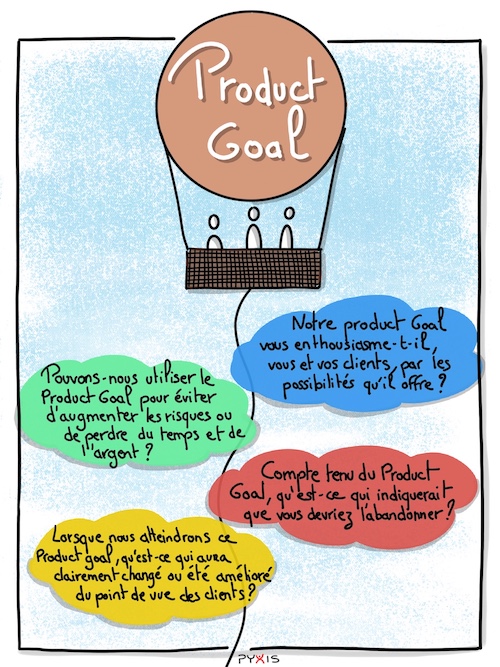 Product
Goal
Notre product Goal
vous enthousiasme-t-il,
vous et vos clients, par les
possibilités qu'il offre ?
Pouvons-nous utiliser le
Product Goal pour éviter
d'augmenter les risques ou
de perdre du temps et de
l'argent ?
Compte tenu du Product
Goal, qu'est-ce qui indiquerait
que vous devriez l'abandonner ?
Lorsque nous atteindrons ce
Product goal, qu'est-ce qui aura
clairement changé ou été amélioré
du point de vue des clients ?
PYXIS